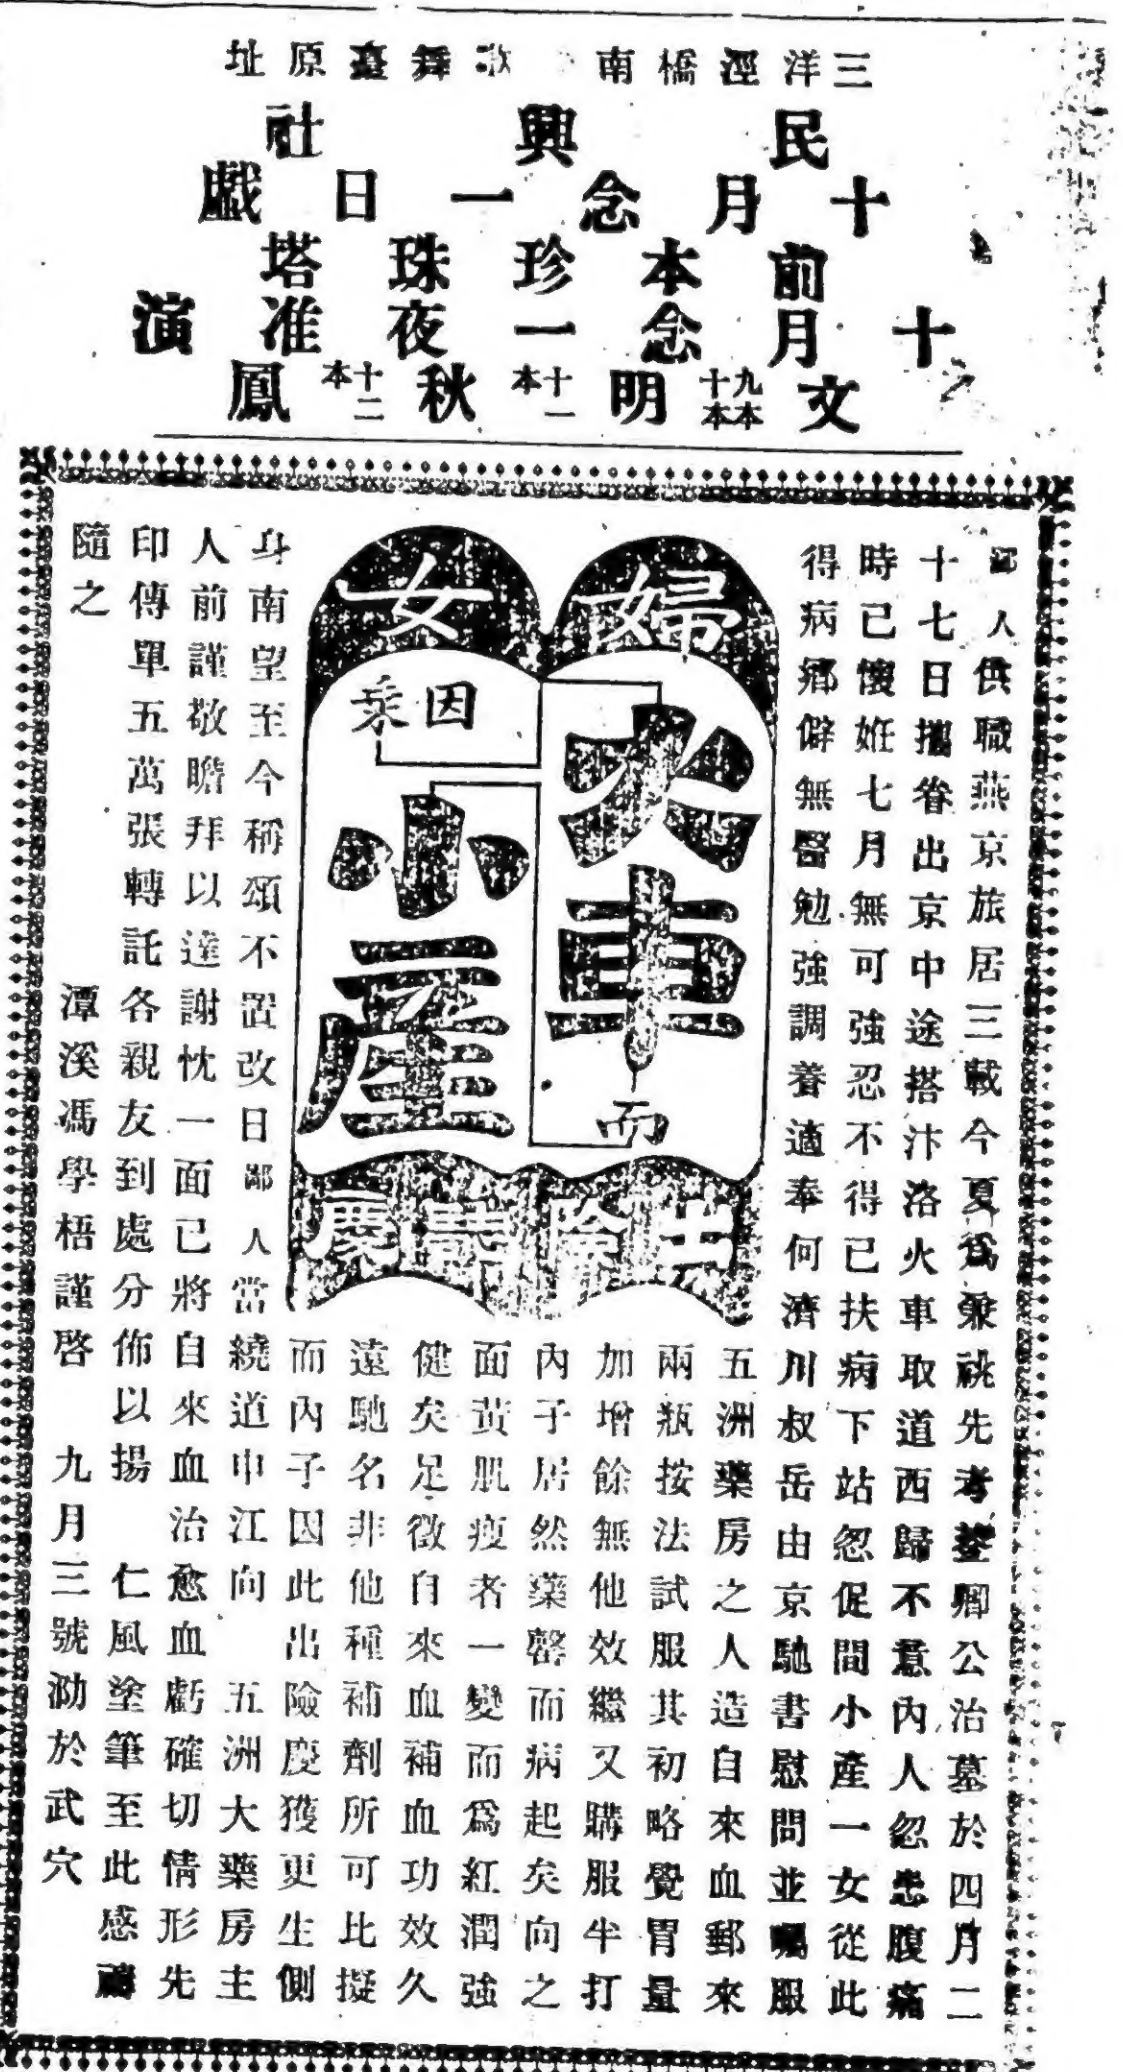 三洋涇橋南歌舞臺原址
民興社
十月念一日戲
前本珍珠塔
十月念一夜准演
文九本十本明十一本秋十二本鳳
婦女
因乘火車而小產
出險志慶
鄙人供職燕京旅居三載今夏爲兼祧先考蓥卿公治墓於四月二
十七日攜眷出京中途搭汴洛火車取道西歸不意內人忽患腹痛
時已懷姙七月無可強忍不得已扶病下站忽促間小產一女從此
得病鄉僻無醫勉強調養適奉何濟川叔岳由京馳書慰問並囑服
五洲藥房之人造自來血郵來
兩瓶按法試服其初略覺胃量
加增餘無他效繼又購服半打
內子居然藥罄而病起矣向之
面黃肌瘦者一變而爲紅潤強
健矣足徵自來血補血功效久
遠馳名非他種補劑所可比擬
而內子因此出險慶獲更生側
身南望至今稱頌不置改日鄙人當繞道申江向 五洲大藥房主
人前謹敬瞻拜以達謝忱一面已將自來血治愈血虧確切情形先
印傳單五萬張轉託各親友到處分佈以揚 仁風塗筆至此感禱
隨之 潭溪馮學梧謹啓 九月三號泐於武穴